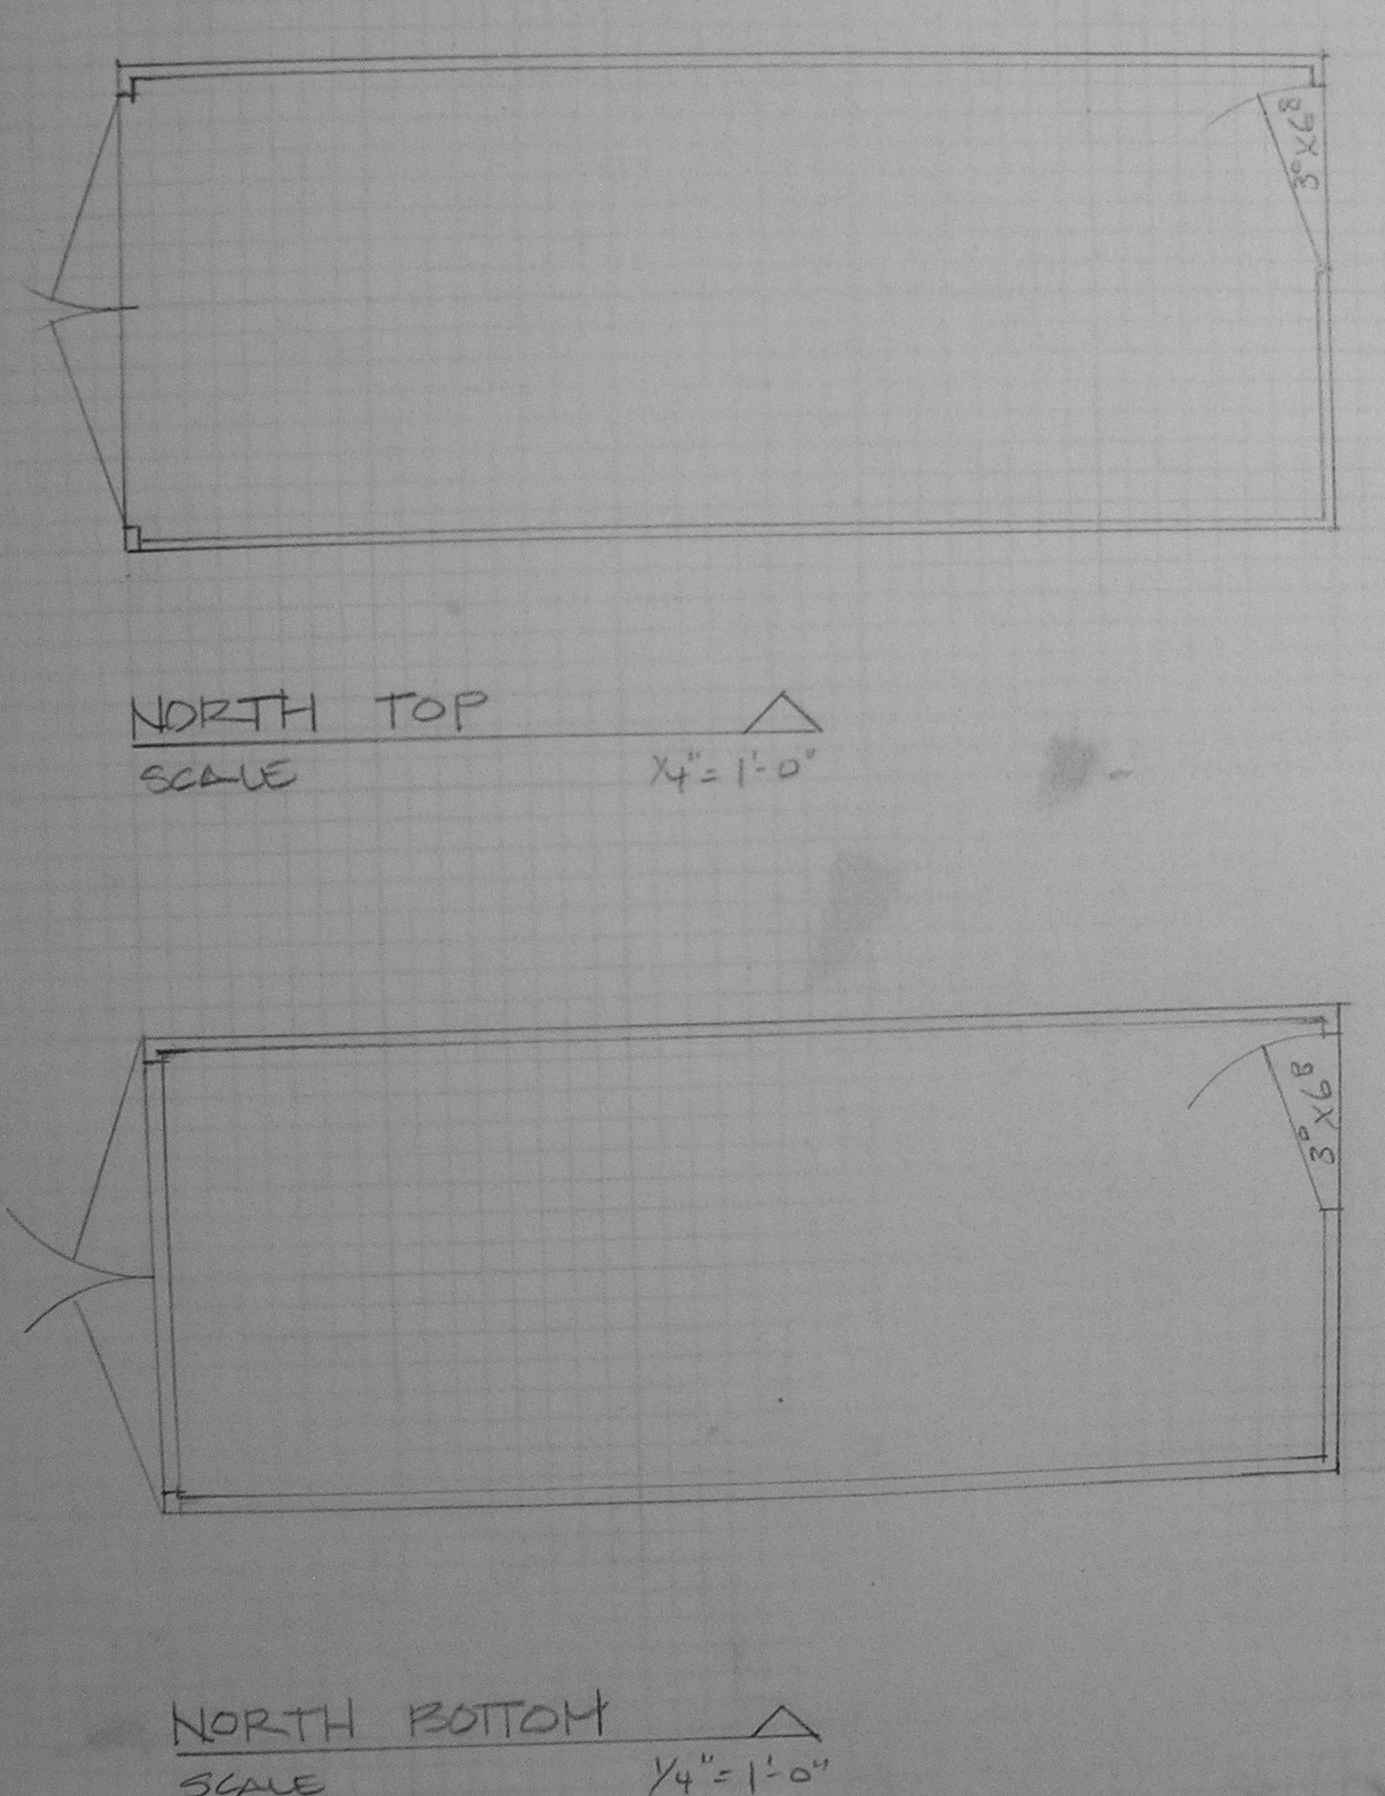 3⁰ X 6⁸
NORTH TOP
SCALE 1/4" = 1'-0"
3⁰ X 6⁸
NORTH BOTTOM
SCALE 1/4" = 1'-0"